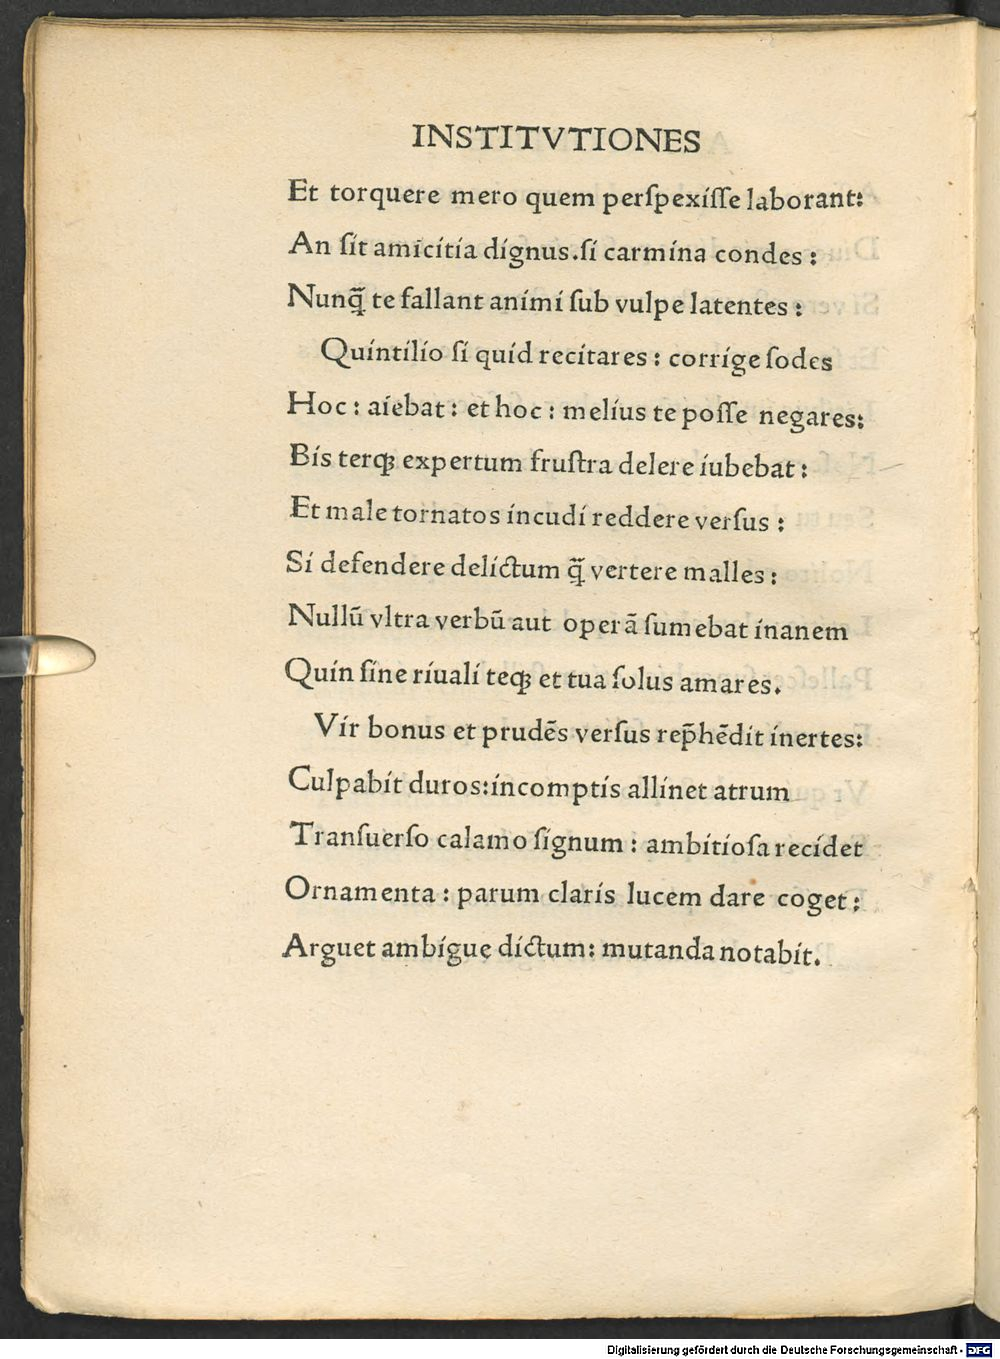 INSTITVTIONES
Et torquere mero quem perſpexiſſe laborant:
An ſit amicitia dignus.ſi carmina condes :
Nunq̃ te fallant animi ſub vulpe latentes :
Quintilio ſi quid recitares : corrige ſodes
Hoc : aiebat : et hoc : melius te poſſe negares:
Bis terqꝫ expertum fruſtra delere iubebat :
Et male tornatos incudi reddere verſus :
Si defendere delictum q̃ vertere malles :
Nullū vltra verbū aut operā ſumebat inanem
Quin ſine riuali teqꝫ et tua ſolus amares.
Vir bonus et prudēs verſus rep̄hēdit inertes:
Culpabit duros:incomptis allinet atrum
Tranſuerſo calamo ſignum : ambitioſa recidet
Ornamenta : parum claris lucem dare coget :
Arguet ambigue dictum: mutanda notabit.
Digitalisierung gefördert durch die Deutsche Forschungsgemeinschaft - DFG